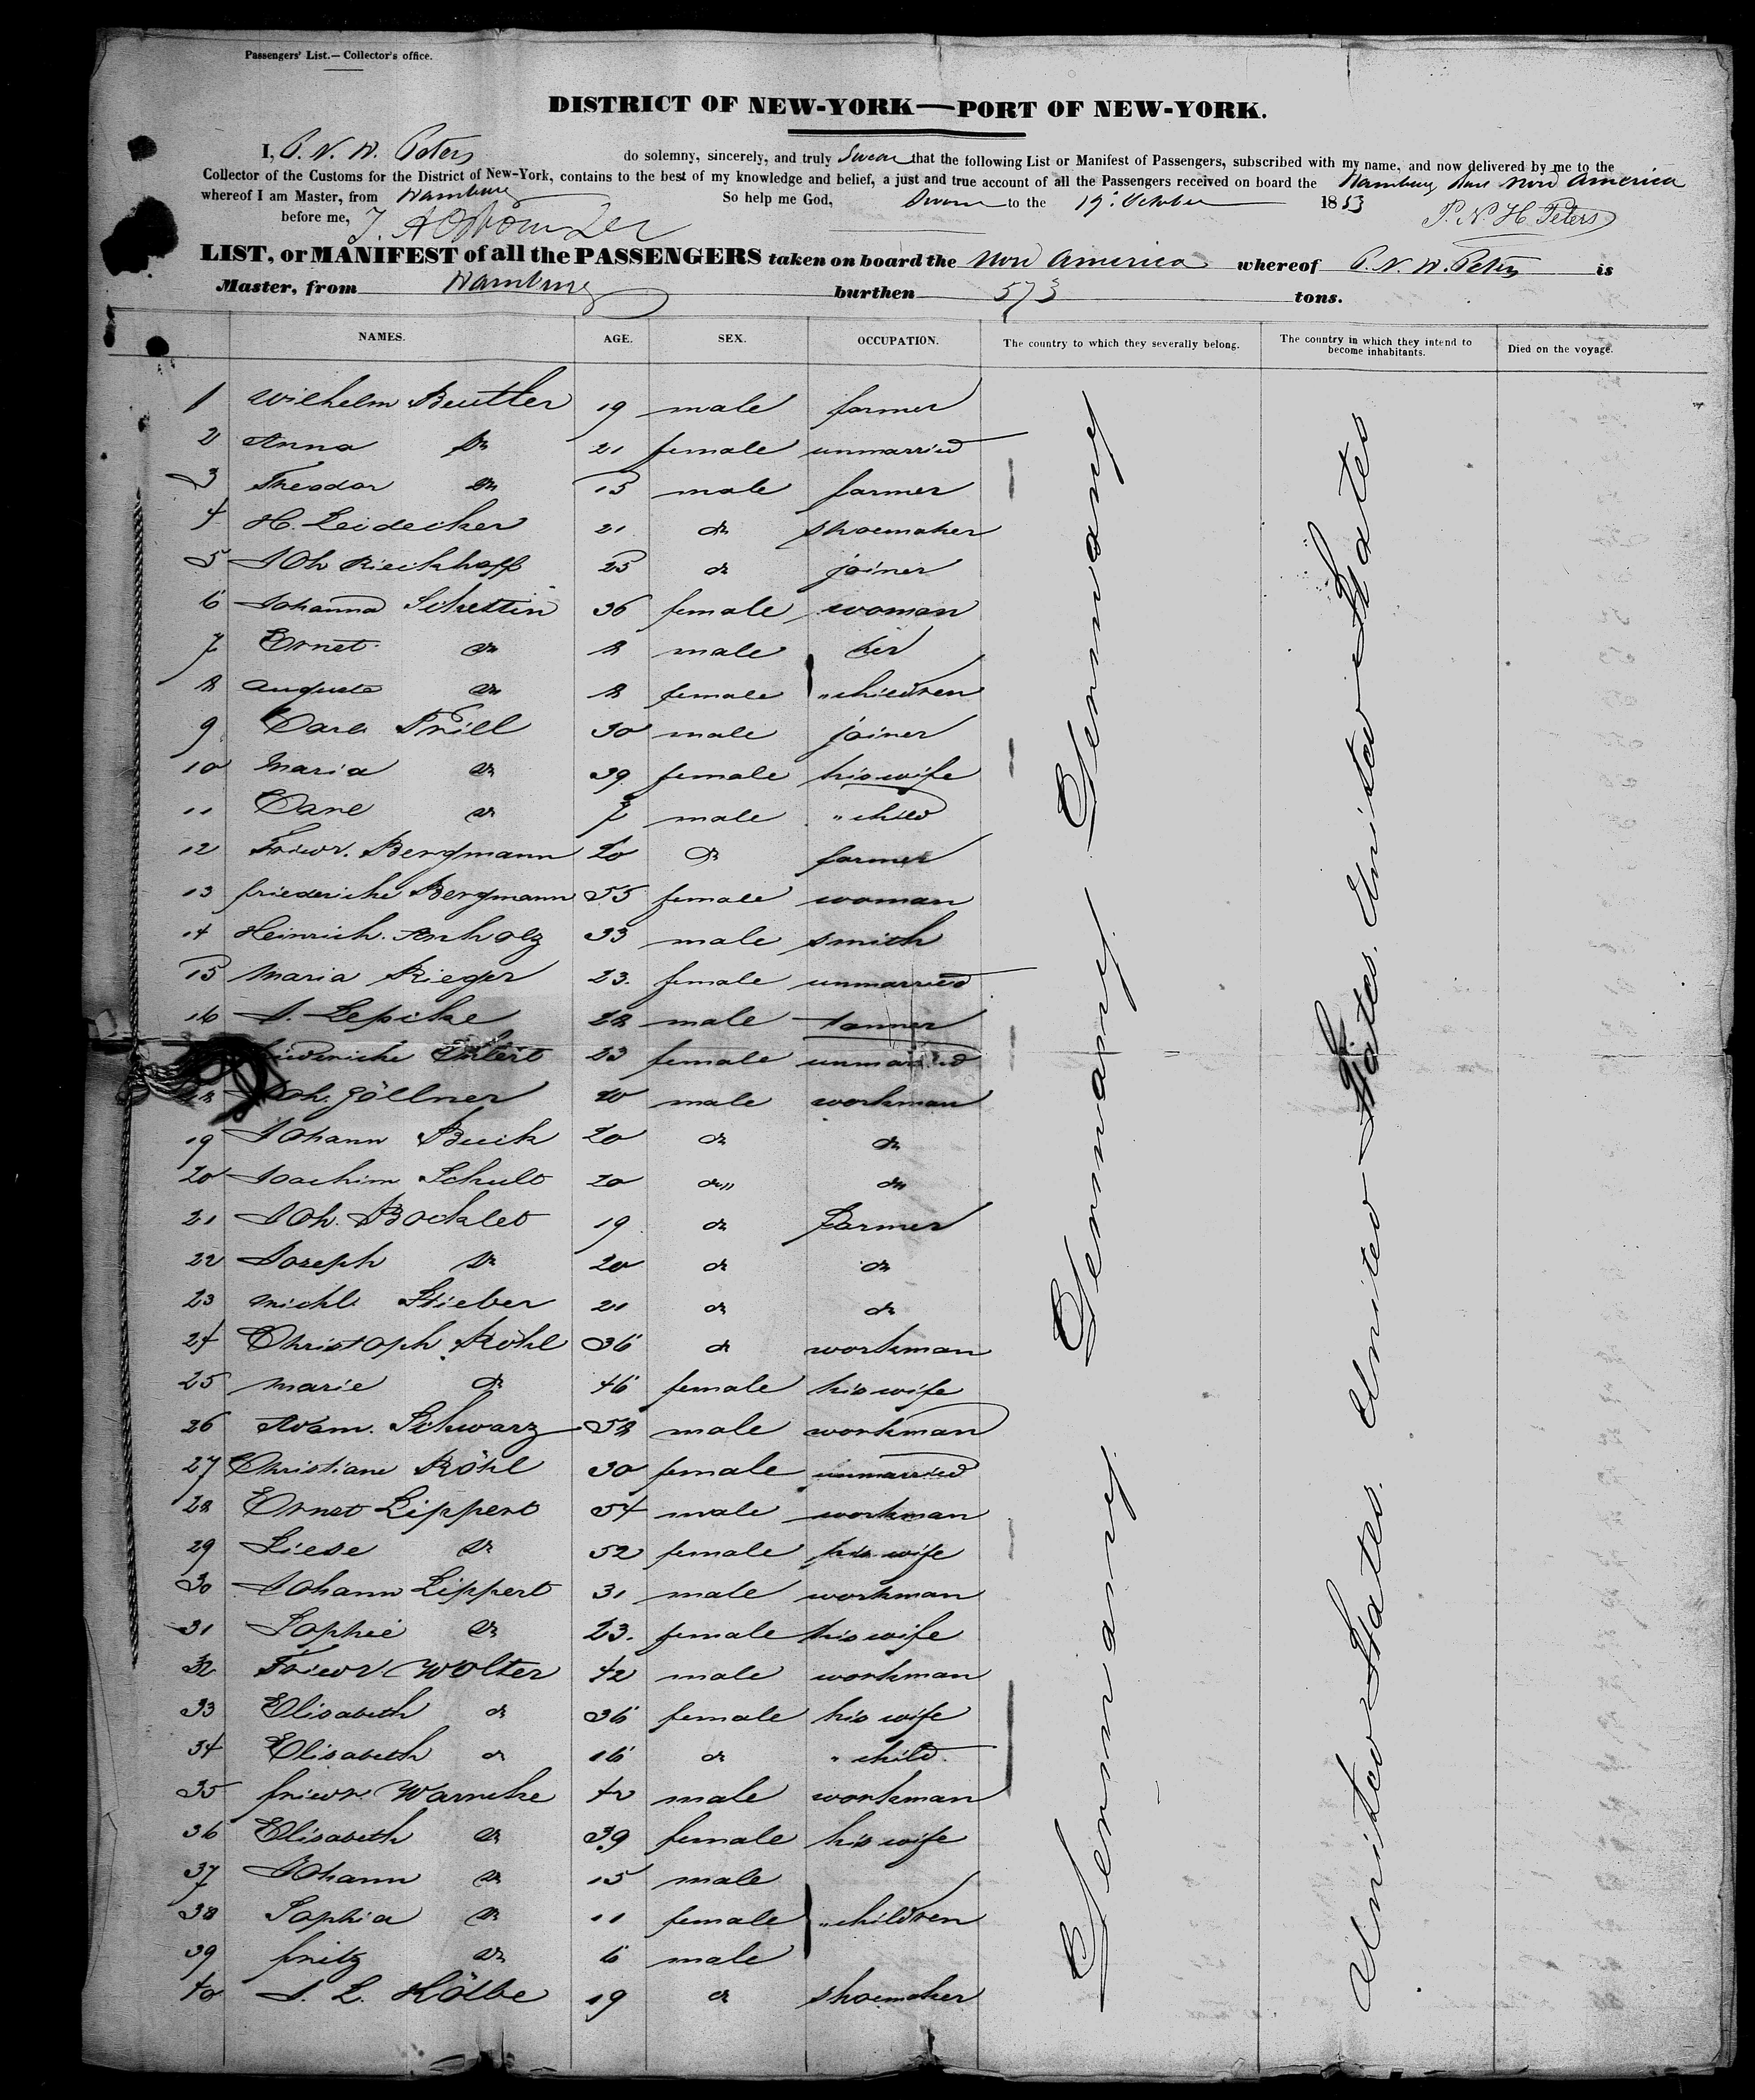 Passengers' List.— Collector's office.
DISTRICT OF NEW-YORK—PORT OF NEW-YORK.
I, P. N. H. Peters do solemny, sincerely, and truly swear that the following List or Manifest of Passengers, subscribed with my name, and now delivered by me to the
Collector of the Customs for the District of New-York, contains to the best of my knowledge and belief, a just and true account of all the Passengers received on board the Hamburg Nord America
whereof I am Master, from Hamburg So help me God, Sworn to the 19. October 1853 P. N. H. Peters
before me,
LIST, or MANIFEST of all the PASSENGERS taken on board the Nord America whereof P. N. H. Peters is
Master, from Hamburg burthen 573 tons.
NAMES. AGE. SEX. OCCUPATION. The country to which they severally belong. The country in which they intend to become inhabitants. Died on the voyage.
1 Wilhelm Beutler 19 male farmer
2 Anna do 21 female unmarried
3 Theodor do 15 male farmer
4 H. Leidecker 21 do shoemaker
5 Joh Rieckhoff 25 do joiner
6 Johanna Schettin 36 female woman
7 Ernst do 8 male her
8 Auguste do 8 female " children
9 Carl Prill 30 male joiner
10 Maria do 39 female his wife
11 Carl do 7 male " child
12 Friedr. Bergmann 20 do farmer
13 friederike Bergmann 55 female woman
14 Heinrich Anholz 33 male smith
15 Maria Rieger 23. female unmarried
16 J. Lepicke 28 male tanner
23 female unmarried
18 Joh. Göllner 20 male workman
19 Johann Buck 20 do do
20 Joachim Schult 20 do" do
21 Joh. Bocklet 19 do farmer
22 Joseph do 20 do do
23 Michl Stieber 21 do do
24 Christoph Röhl 36 do workman
25 Marie do 46 female his wife
26 Adam. Schwarz 58 male workman
27 Christiane Röhl 30 female unmarried
28 Ernst Lippert 54 male workman
29 Liese do 52 female his wife
30 Johann Lippert 31 male workman
31 Sophie do 23. female his wife
32 Friedr Wolter 42 male workman
33 Elisabeth do 36 female his wife
34 Elisabeth do 16 do " child.
35 friedr Warncke 42 male workman
36 Elisabeth do 39 female his wife
37 Johann do 15 male
38 Sophia do 11 female " children
39 fritz do 6 male
40 J. L. Kölbe 19 do shoemaker
Germany Germany Germany Germany
United States. United States. United States